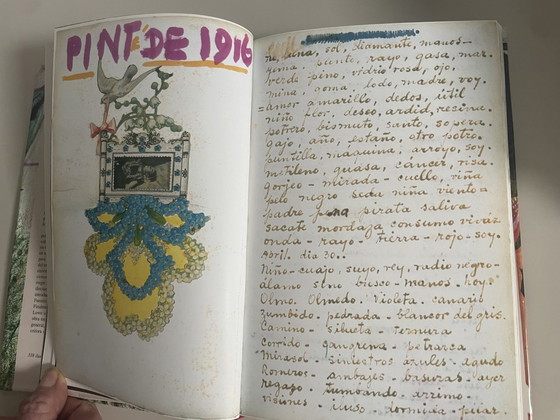 PINTÉ DE 1916
no, luna, sol, diamante, manos-
yema, punto, rayo, gasa, mar.
verde pino, vidrio rosa, ojo,
mina, goma, lodo, madre, voy.
=amor amarillo, dedos, útil
niño flor, deseo, ardid, resina.
potrero, bismuto, santo, sopera.
gajo, año, estaño, otro potro.
puntilla, maquina, arroyo, soy.
metileno, guasa, cáncer, risa.
gorjeo - mirada - cuello, viña
pelo negro seda niña viento =
padre pena pirata saliva
sacate mordaza consumo vivaz
onda - rayo - tierra - rojo - soy.
Abril. dia 30.
Niño - cuajo, suyo, rey, radio negro -
álamo sino busco - manos. hoy.
Olmo. Olmedo. Violeta. canario
zumbido. pedrada - blancor del gris.
Camino - silueta - ternura
Corrido - gangrena - Petrarca
Mirasol - siniestros azules - agudo
Romeros - ambajes - basuras - ayer
regago - tumbando, arrimo -
visiones - iluso - dormida - pilar.